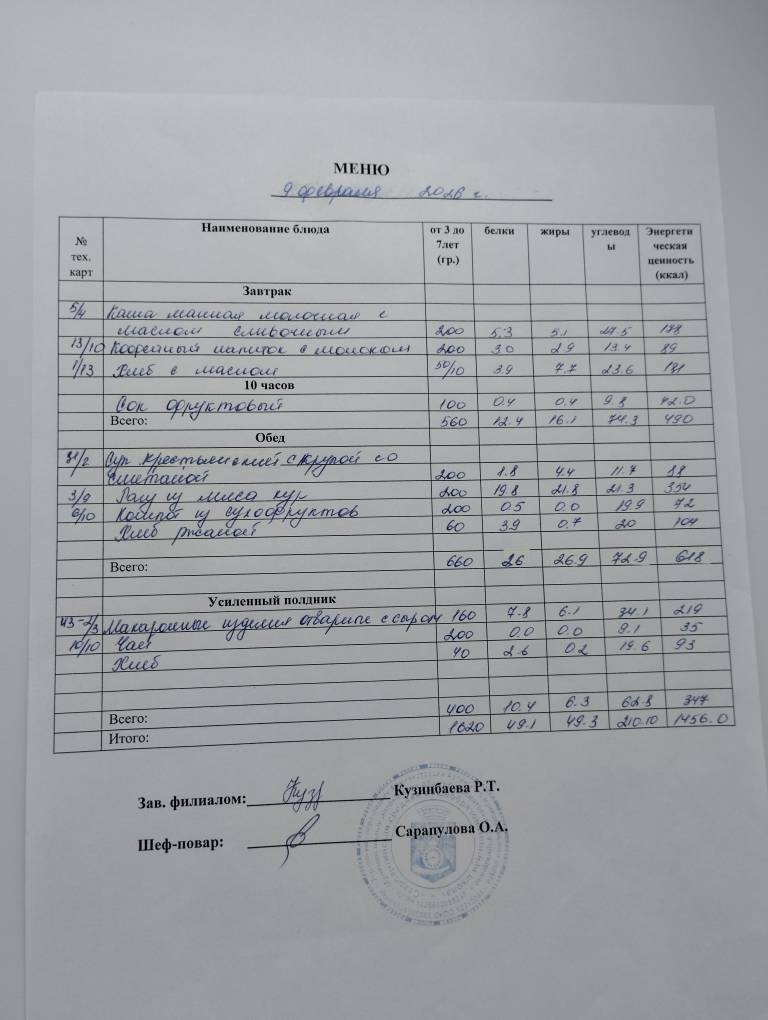 МЕНЮ
9 февраля 2026 г.
№ тех. карт Наименование блюда от 3 до 7лет (гр.) белки жиры углеводы Энергетическая ценность (ккал)
Завтрак
5/4 Каша манная молочная с
маслом сливочным 200 5.3 5.1 27.5 178
13/10 Кофейный напиток с молоком 200 3.0 2.9 13.4 89
1/13 Хлеб с маслом 50/10 3.9 7.7 23.6 181
10 часов
Сок фруктовый 100 0.4 0.4 9.8 42.0
Всего: 560 12.4 16.1 74.3 490
Обед
31/2 Суп крестьянский с крупой со
сметаной 200 1.8 4.4 11.7 88
3/9 Рагу из мяса кур 200 19.8 21.8 21.3 354
6/10 Компот из сухофруктов 200 0.5 0.0 19.9 72
Хлеб ржаной 60 3.9 0.7 20 104
Всего: 660 26 26.9 72.9 618
Усиленный полдник
43-2/3 Макаронные изделия отварные с сыром 160 7.8 6.1 34.1 219
10/10 Чай 200 0.0 0.0 9.1 35
Хлеб 40 2.6 0.2 19.6 93
Всего: 400 10.4 6.3 62.8 347
Итого: 1620 49.1 49.3 210.10 1456.0
Зав. филиалом: Кузинбаева Р.Т.
Шеф-повар: Сарапулова О.А.